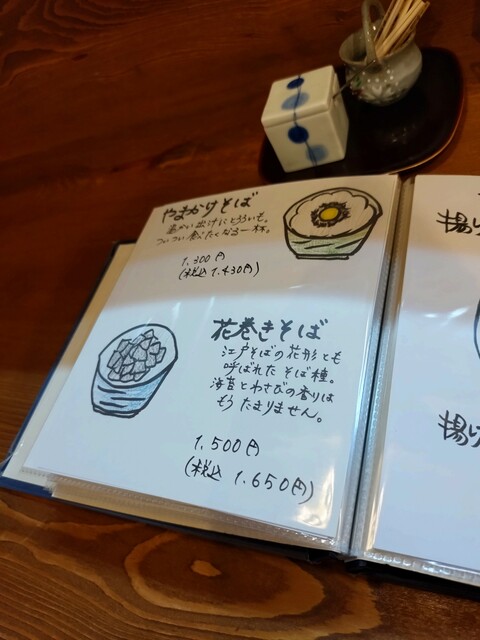 やまかけそば
温かい出汁にとろろいも。
ついつい飲みたくなる一杯。
1,300円
(税込 1,430円)
花巻きそば
江戸そばの花形とも
呼ばれたそば種。
海苔とわさびの香りは
もうたまりません。
1,500円
(税込 1,650円)
揚げ
揚げ